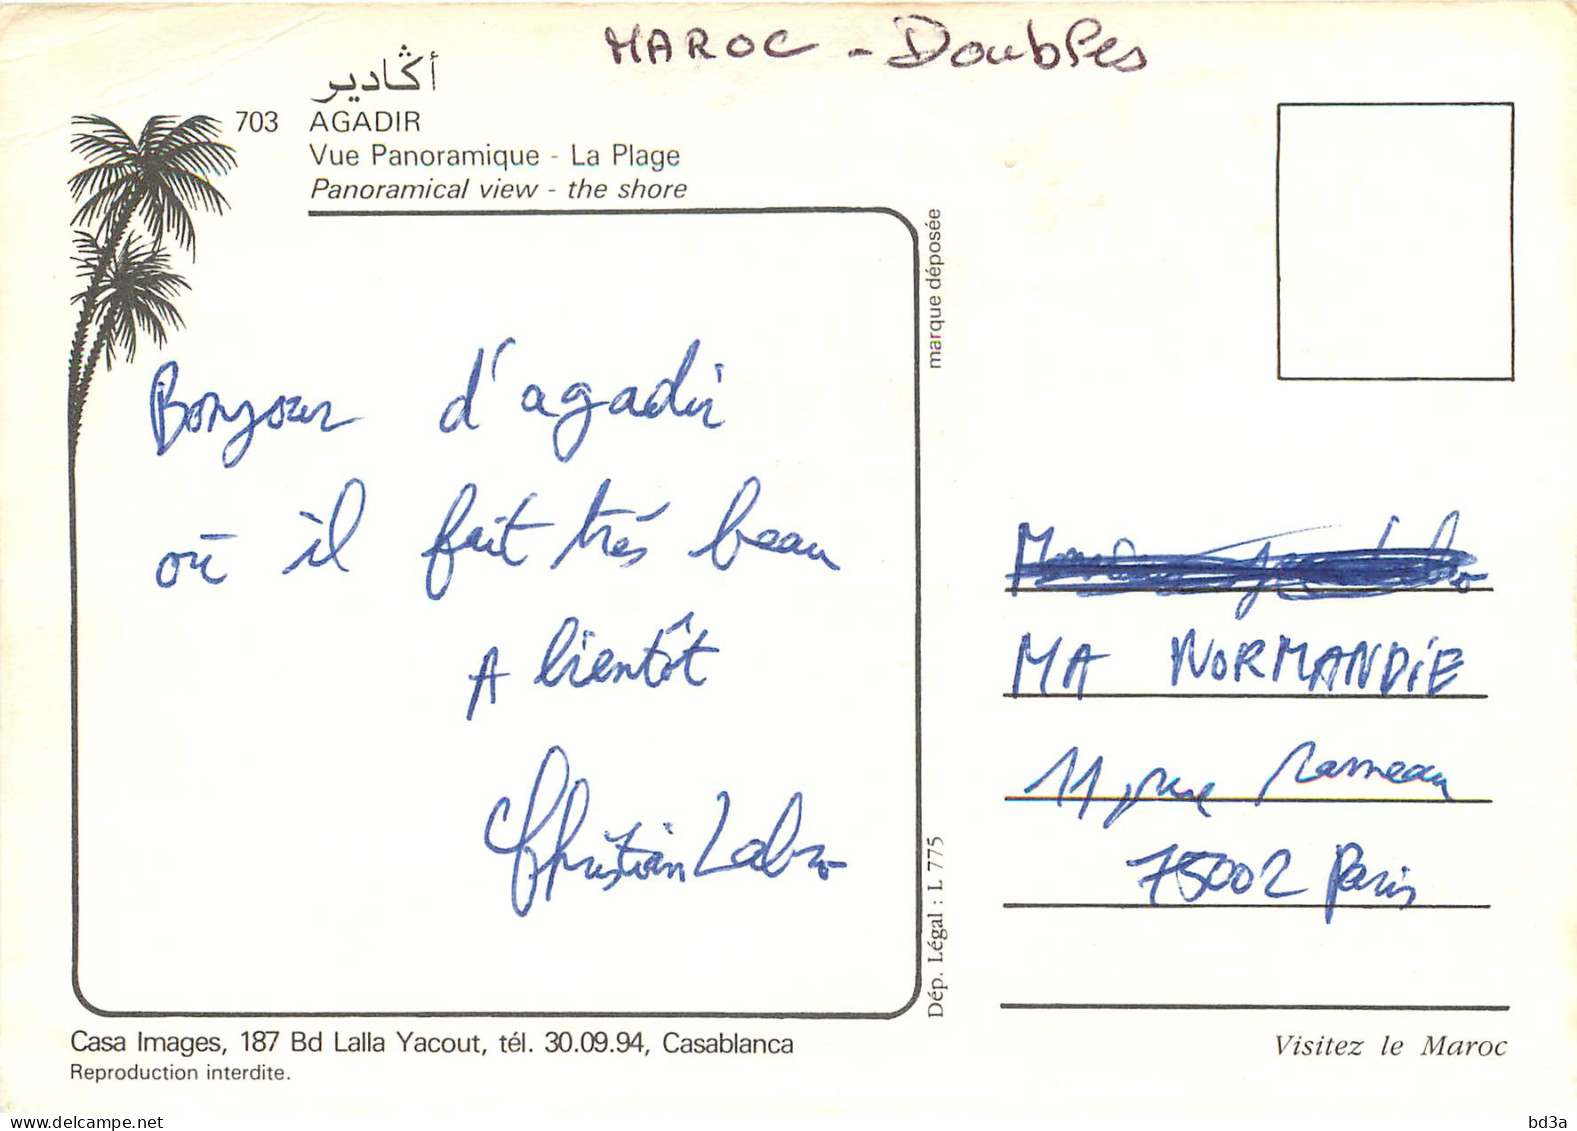 MAROC - Doubles
أڭادير
703 AGADIR
Vue Panoramique - La Plage
Panoramical view - the shore
marque déposée
Bonjour d'agadir
où il fait très beau
A bientôt
Christian Labro
MA NORMANDIE
11, rue Rameau
75002 Paris
Dép. Légal : L 775
Casa Images, 187 Bd Lalla Yacout, tél. 30.09.94, Casablanca
Reproduction interdite.
Visitez le Maroc
www.delcampe.net
bd3a